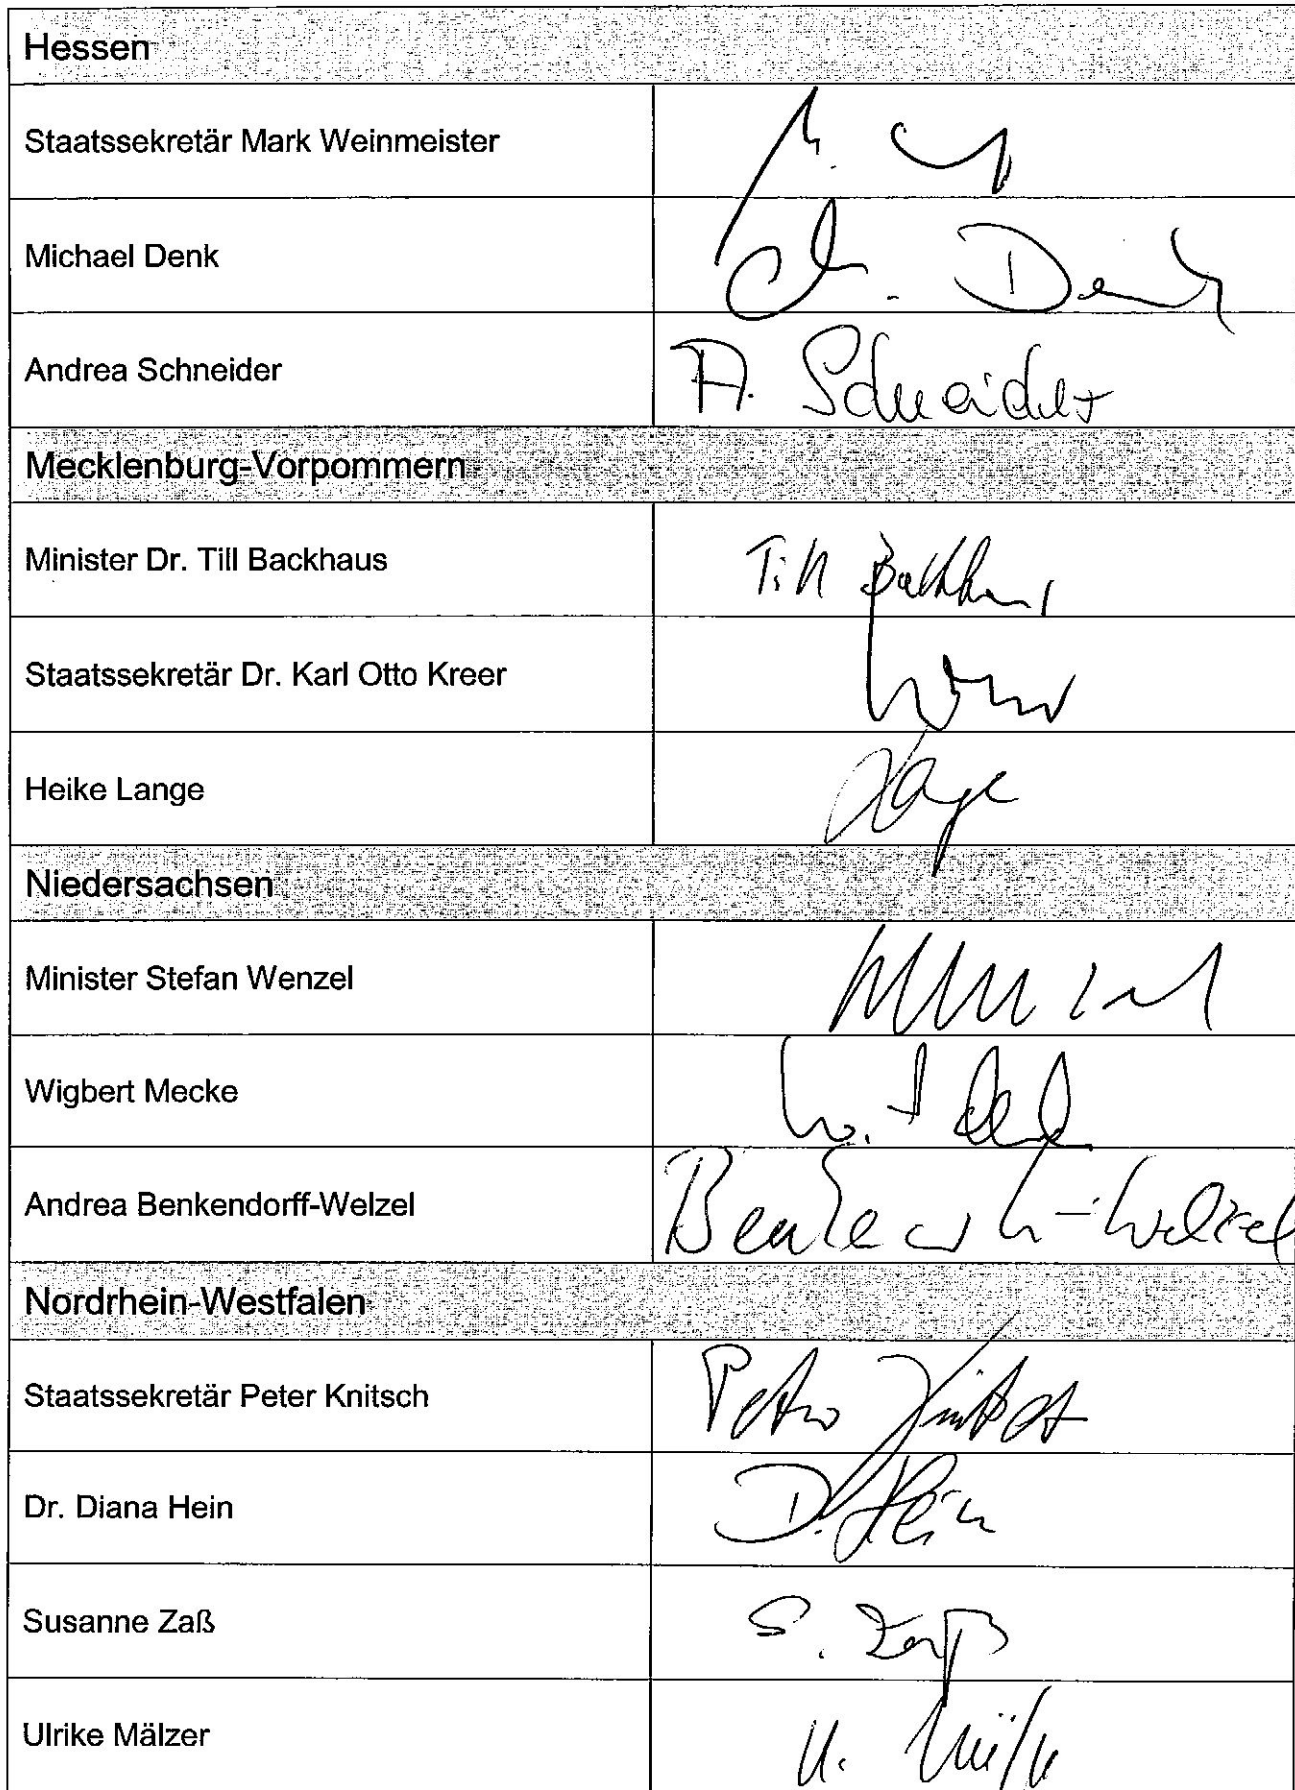 Hessen
Staatssekretär Mark Weinmeister
Michael Denk
Andrea Schneider A. Schneider
Mecklenburg-Vorpommern
Minister Dr. Till Backhaus Till Backhaus
Staatssekretär Dr. Karl Otto Kreer
Heike Lange Lange
Niedersachsen
Minister Stefan Wenzel
Wigbert Mecke
Andrea Benkendorff-Welzel
Nordrhein-Westfalen
Staatssekretär Peter Knitsch Peter Knitsch
Dr. Diana Hein D. Hein
Susanne Zaß S. Zaß
Ulrike Mälzer